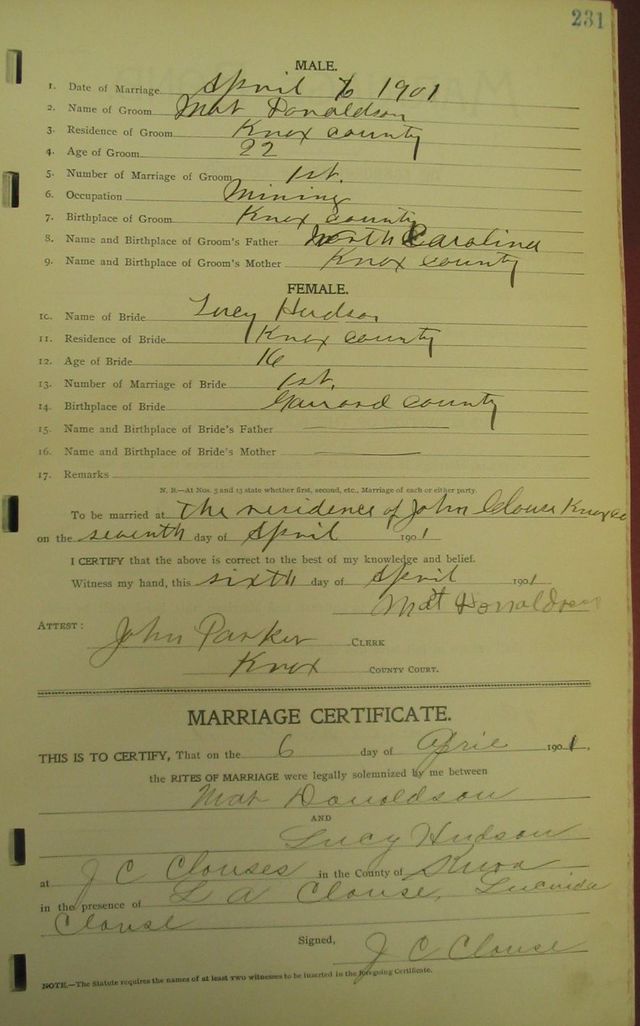 231
MALE.
1. Date of Marriage April 6 1901
2. Name of Groom Mat Donaldson
3. Residence of Groom Knox county
4. Age of Groom 22
5. Number of Marriage of Groom 1st.
6. Occupation Mining
7. Birthplace of Groom Knox county
8. Name and Birthplace of Groom's Father North Carolina
9. Name and Birthplace of Groom's Mother Knox county
FEMALE.
10. Name of Bride Lucy Hudson
11. Residence of Bride Knox county
12. Age of Bride 16
13. Number of Marriage of Bride 1st.
14. Birthplace of Bride Garrard county
15. Name and Birthplace of Bride's Father
16. Name and Birthplace of Bride's Mother
17. Remarks
N. B.—At Nos. 5 and 13 state whether first, second, etc., Marriage of each or either party.
To be married at the residence of John Clouse Knox co
on the seventh day of April 1901
I CERTIFY that the above is correct to the best of my knowledge and belief.
Witness my hand, this sixth day of April 1901
Mat Donaldson
ATTEST: John Parker CLERK
Knox COUNTY COURT.
MARRIAGE CERTIFICATE.
THIS IS TO CERTIFY, That on the 6 day of Aprie 1901,
the RITES OF MARRIAGE were legally solemnized by me between
Mat Donaldson
AND
Lucy Hudson
at J C Clouses in the County of Knox
in the presence of L A Clouse, Lucinda
Clouse
Signed, J C Clouse
NOTE.—The Statute requires the names of at least two witnesses to be inserted in the foregoing Certificate.